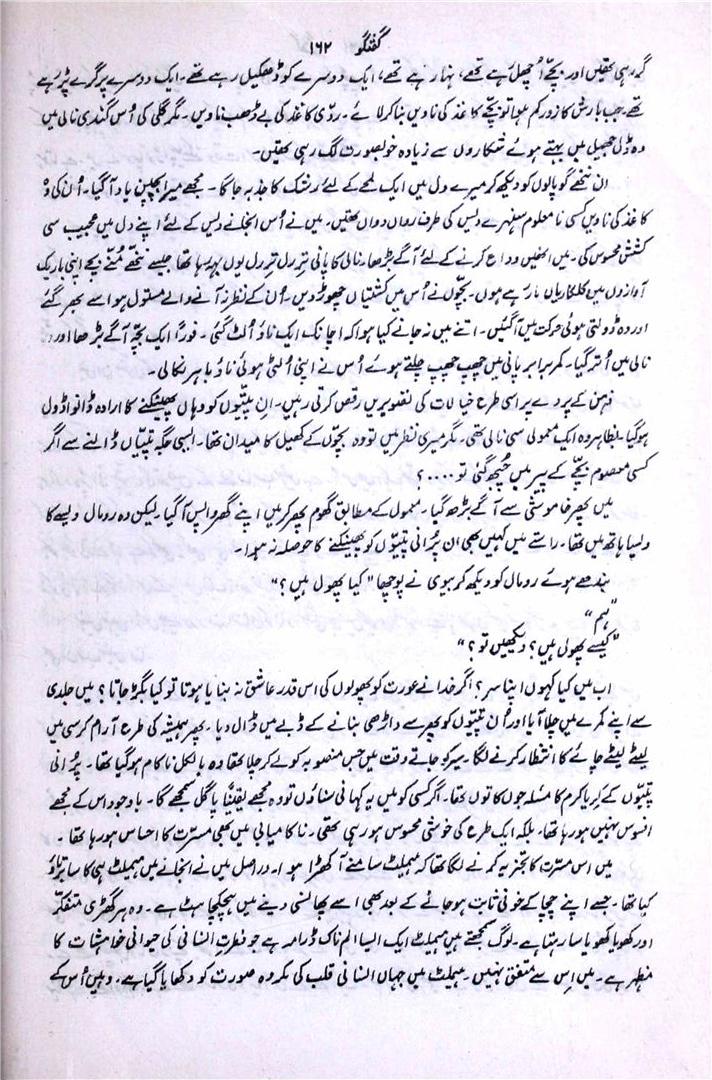 گفتگو ۱۶۲
گہ رہی تھیں اور بچے اُچھل رہے تھے، نہا رہے تھے، ایک دوسرے کو ڈھکیل رہے تھے۔ ایک دوسرے پر گرے پڑ رہے
تھے۔ جب بارش کا زور کم ہوا تو بچے کاغذ کی ناویں بنا کر لائے۔ ردّی کاغذ کی بے ڈھب ناویں۔ مگر گلی کی اُس گندی نالی میں
وہ ڈل جھیل میں بہتے ہوئے شکاروں سے زیادہ خوبصورت لگ رہی تھیں۔
ان ننھے گوپالوں کو دیکھ کر میرے دل میں ایک لمحے کے لئے رشک کا جذبہ جاگا۔ مجھے میرا بچپن یاد آگیا۔ اُن کی وہ
کاغذ کی ناویں کسی نامعلوم سنہرے دیس کی طرف رواں دواں تھیں۔ میں نے اُس انجانے دیس کے لئے اپنے دل میں عجیب سی
کشش محسوس کی۔ میں انھیں وداع کرنے کے لئے آگے بڑھا۔ نالی کا پانی تِر رل تِر رل یوں بہہ رہا تھا جیسے ننھے مُنّے بچے اپنی باریک
آوازوں میں کلکاریاں مار رہے ہوں۔ بچّوں نے اُس میں کشتیاں چھوڑ دیں۔ اُن کے نظر نہ آنے والے مستول ہوا سے بھر گئے
اور وہ ڈولتی ہوئی حرکت میں آگئیں۔ اتنے میں نہ جانے کیا ہوا کہ اچانک ایک ناؤ اُلٹ گئی۔ فوراً ایک بچّہ آگے بڑھا اور
نالی میں اُتر گیا۔ کمر برابر پانی میں چھپ چھپ چلتے ہوئے اُس نے اپنی اُلٹی ہوئی ناؤ باہر نکالی۔
ذہن کے پردے پر اسی طرح خیالات کی تصویریں رقص کرتی رہیں۔ ان پتیوں کو وہاں پھینکنے کا ارادہ ڈانواڈول
ہوگیا۔ بظاہر وہ ایک معمولی سی نالی تھی۔ مگر میری نظر میں تو وہ بچّوں کے کھیل کا میدان تھا۔ ایسی جگہ پتیاں ڈالنے سے اگر
کسی معصوم بچّے کے پیر میں چُبھ گئی تو ....؟
میں پھر خاموشی سے آگے بڑھ گیا۔ معمول کے مطابق گھوم پھر کر میں اپنے گھر واپس آگیا۔ لیکن وہ رومال ویسے کا
ویسا ہاتھ میں تھا۔ راستے میں کہیں بھی ان پُرانی پتیوں کو پھینکنے کا حوصلہ نہ ہوا۔
بندھے ہوئے رومال کو دیکھ کر بیوی نے پوچھا "کیا پھول ہیں؟"
"ہم"
"کیسے پھول ہیں؟ دیکھیں تو؟"
اب میں کیا کہوں اپنا سر؟ اگر خدا نے عورت کو پھولوں کی اس قدر عاشق نہ بنایا ہوتا تو کیا بگڑ جاتا؟ میں جلدی
سے اپنے کمرے میں چلا آیا اور اُن پتیوں کو پھر سے داڑھی بنانے کے ڈبے میں ڈال دیا۔ پھر ہمیشہ کی طرح آرام کرسی میں
لیٹے لیٹے چائے کا انتظار کرنے لگا۔ سیر کو جاتے وقت میں جس منصوبہ کو لے کر چلا تھا وہ بالکل ناکام ہو گیا تھا۔ پُرانی
پتیوں کے کریا کرم کا مسئلہ جوں کا توں تھا۔ اگر کسی کو میں یہ کہانی سناؤں تو وہ مجھے یقیناً پاگل سمجھے گا۔ باوجود اس کے مجھے
افسوس نہیں ہو رہا تھا۔ بلکہ ایک طرح کی خوشی محسوس ہو رہی تھی۔ ناکامیابی میں بھی مسرّت کا احساس ہو رہا تھا۔
میں اس مسرّت کا تجزیہ کرنے لگا تھا کہ ہیملٹ سامنے آ کھڑا ہوا۔ دراصل میں نے انجانے میں ہیملٹ ہی کا سا برتاؤ
کیا تھا۔ جسے اپنے چچا کے خونی ثابت ہو جانے کے بعد بھی اسے پھانسی دینے میں ہچکچاہٹ ہے۔ وہ ہر گھڑی متفکّر
اور کھویا کھویا سا رہتا ہے۔ لوگ سمجھتے ہیں ہیملٹ ایک ایسا الم ناک ڈرامہ ہے جو فطرتِ انسانی کی حیوانی خواہشات کا
مظہر ہے۔ میں اس سے متفق نہیں۔ ہیملٹ میں جہاں انسانی قلب کی مکروہ صورت کو دکھایا گیا ہے۔ وہیں اُس کے